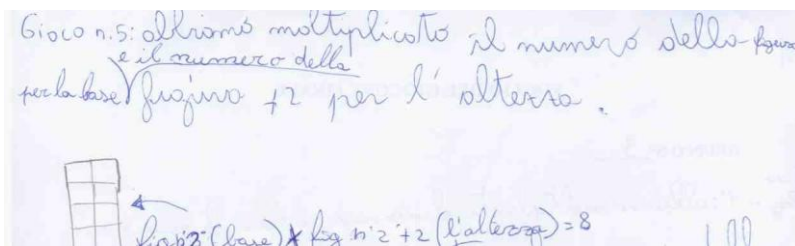 Gioco n.5: abbiamo moltiplicato il numero della figura
e il numero della
per la base figura +2 per l'altezza.
fig n°2 (base) x fig n°2 +2 (l'altezza)=8